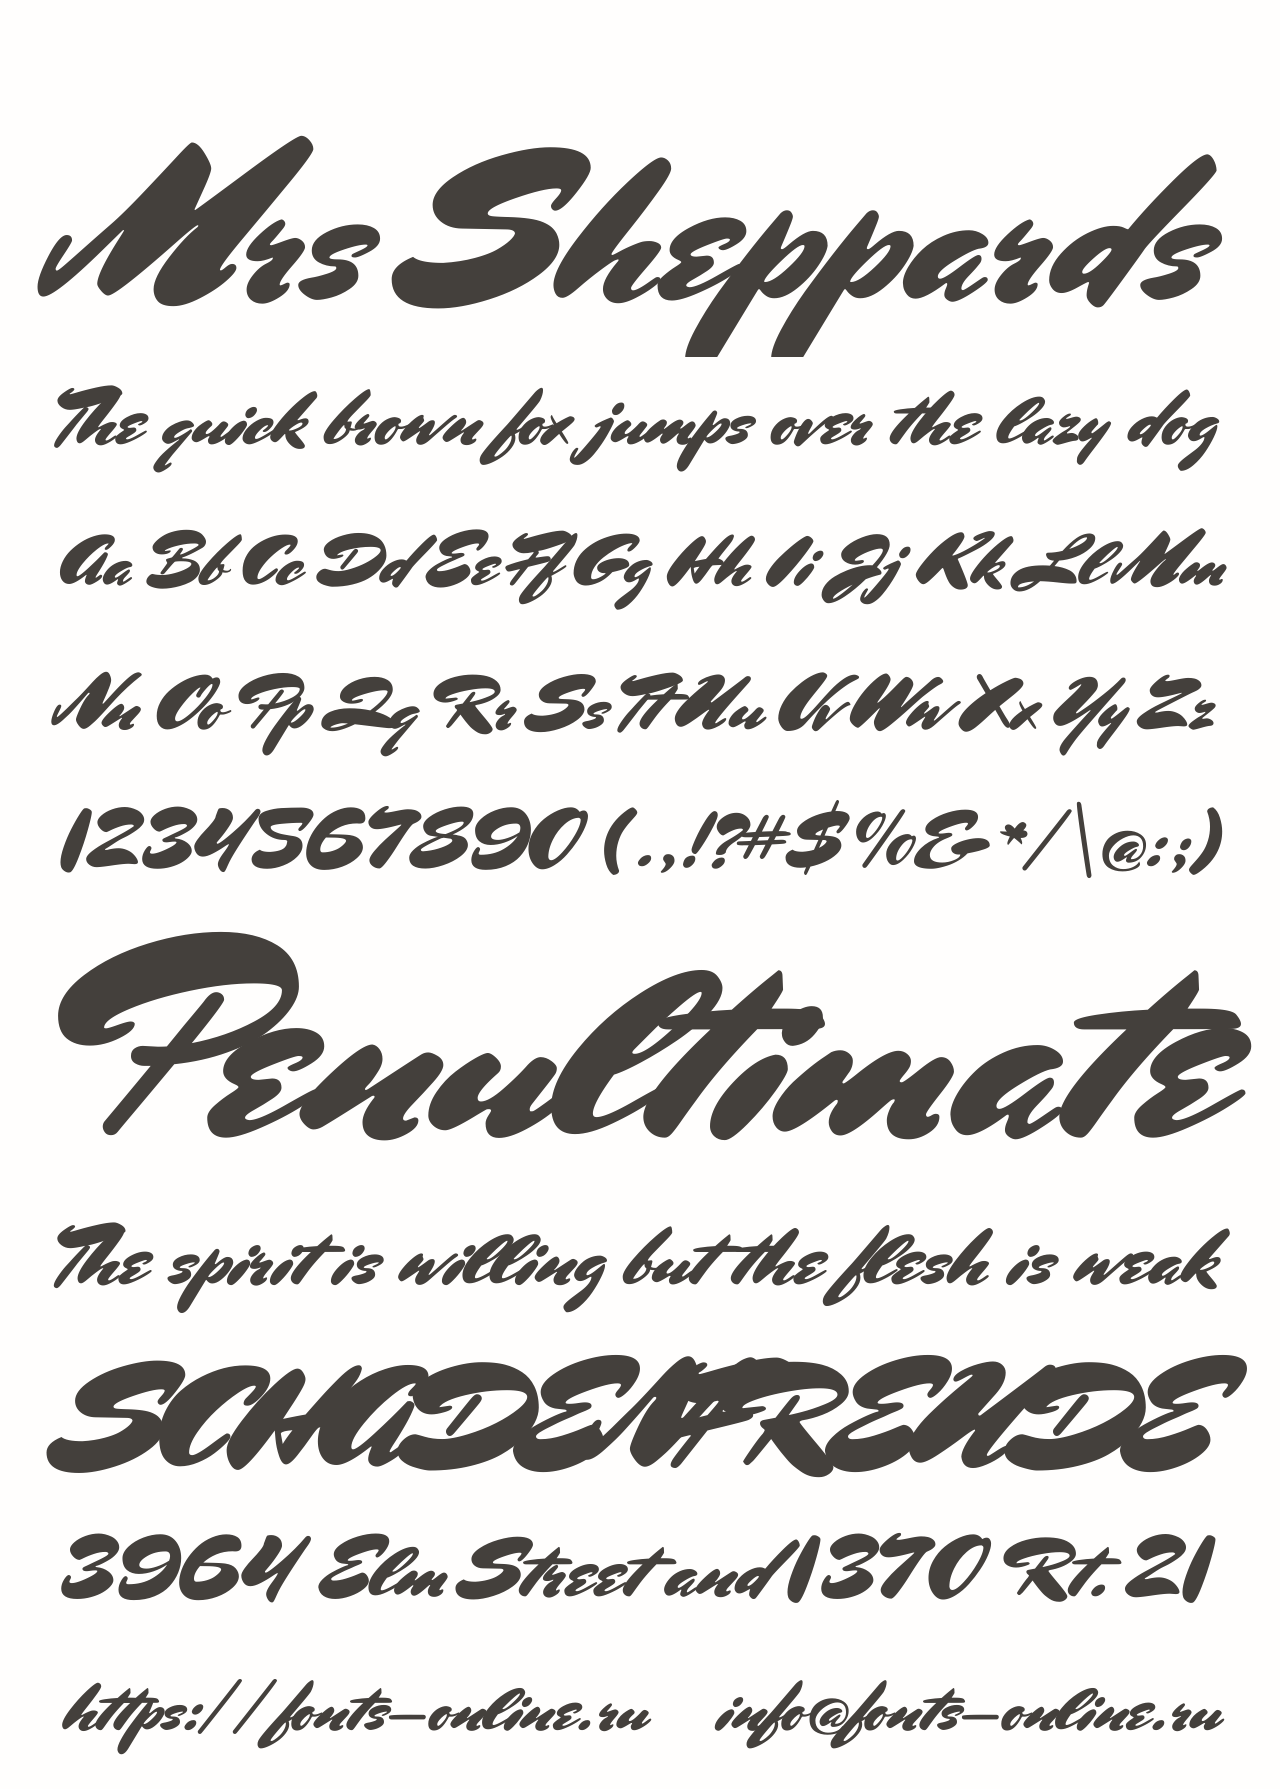 Mrs Sheppards
The quick brown fox jumps over the lazy dog
Aa Bb Cc Dd Ee Ff Gg Hh Ii Jj Kk Ll Mm
Nn Oo Pp Qq Rr Ss Tt Uu Vv Ww Xx Yy Zz
1234567890 (.,!?#$%&*/\@:;)
Penultimate
The spirit is willing but the flesh is weak
SCHADENFREUDE
3964 Elm Street and 1370 Rt. 21
https://fonts-online.ru info@fonts-online.ru